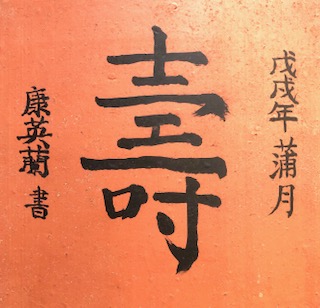 戊戌年蒲月
壽
康英蘭書